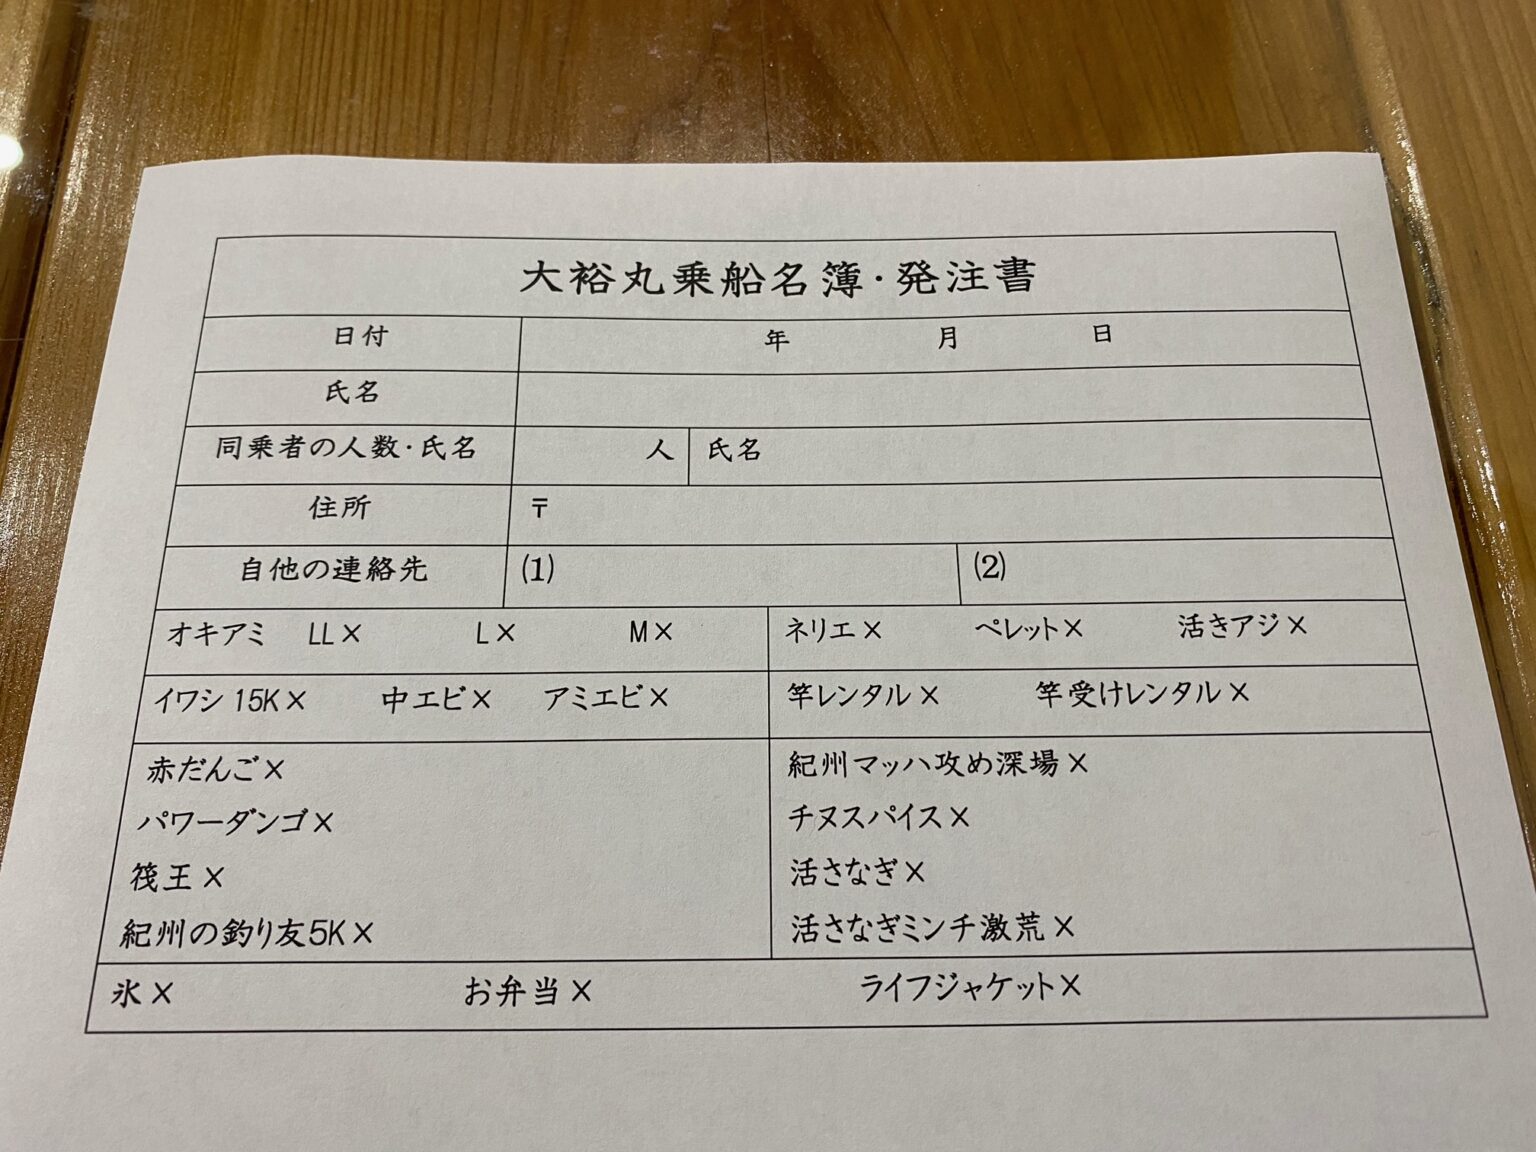 大裕丸乗船名簿・発注書
日付 年 月 日
氏名
同乗者の人数・氏名 人 氏名
住所 〒
自他の連絡先 (1) (2)
オキアミ LL× L× M× ネリエ× ペレット× 活きアジ×
イワシ 15K× 中エビ× アミエビ× 竿レンタル× 竿受けレンタル×
赤だんご× 紀州マッハ攻め深場×
パワーダンゴ× チヌスパイス×
筏王× 活さなぎ×
紀州の釣り友5K× 活さなぎミンチ激荒×
氷× お弁当× ライフジャケット×